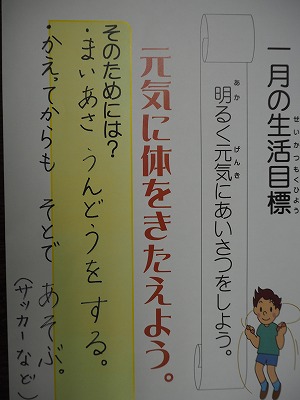 一月の生活目標
明るく元気にあいさつをしよう。
元気に体をきたえよう。
そのためには？
・まいあさ うんどうをする。
・かえってからも そとで あそぶ。
（サッカーなど）